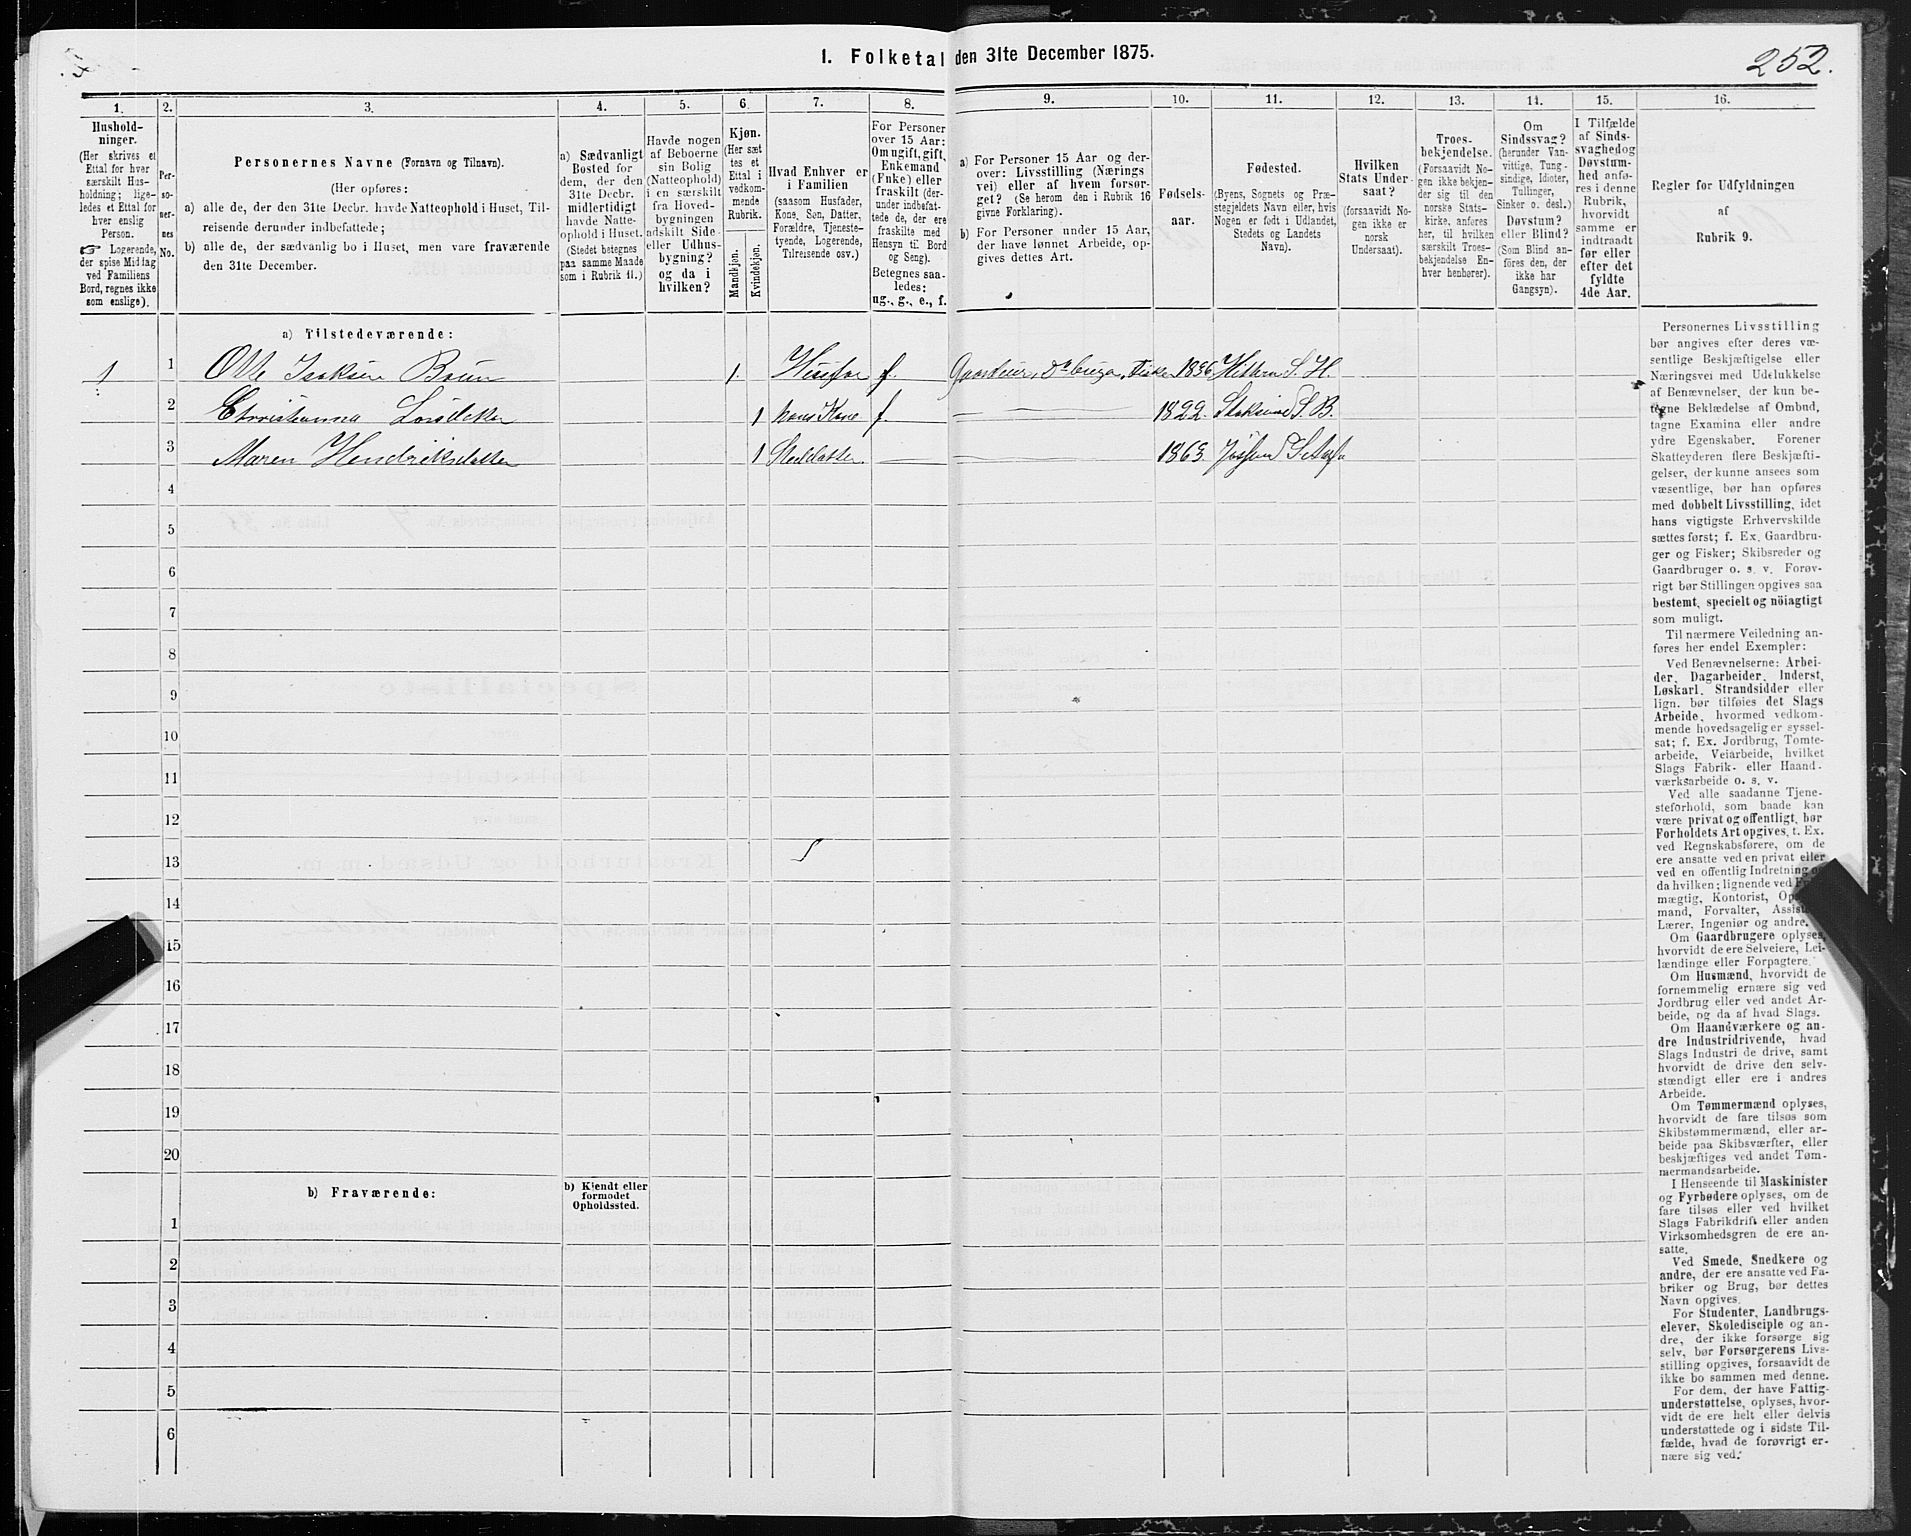 1. Folketal den 31te December 1875.
252.
1. 2. 3. 4. 5. 6. 7. 8. 9. 10. 11. 12. 13. 14. 15. 16.
Hushold-
ninger.
(Her skrives et
Ettal for hver
særskilt Hus-
holdning; lige-
ledes et Ettal for
hver enslig
Person.
☞ Logerende,
der spise Middag
ved Familiens
Bord, regnes ikke
som enslige).
Per-
so-
ner-
nes
No.
Personernes Navne (Fornavn og Tilnavn).
(Her opføres:
a) alle de, der den 31te Decbr. havde Natteophold i Huset, Til-
reisende derunder indbefattede;
b) alle de, der sædvanlig bo i Huset, men vare fraværende
den 31te December.
a) Sædvanligt
Bosted for
dem, der den
31te Decbr.
midlertidigt
havde Natte-
ophold i Huset.
(Stedet betegnes
paa samme Maade
som i Rubrik 11.)
Havde nogen
af Beboerne
sin Bolig
(Natteophold)
i en særskilt
fra Hoved-
bygningen
adskilt Side-
eller Udhus-
bygning?
og da i
hvilken?
Kjøn.
(Her sæt
tes et
Ettal i
vedkom-
mende
Rubrik.
Mandkjøn.
Kvindekjøn.
Hvad Enhver er
i Familien
(saasom Husfader,
Kone, Søn, Datter,
Forældre, Tjeneste-
tyende, Logerende,
Tilreisende osv.)
For Personer
over 15 Aar:
Om ugift, gift,
Enkemand
(Enke) eller
fraskilt (der-
under indbefat-
tede de, der ere
fraskilte med
Hensyn til Bord
og Seng).
Betegnes saa-
ledes:
ug., g., e., f.
a) For Personer 15 Aar og der-
over: Livsstilling (Nærings
vei) eller af hvem forsør-
get? (Se herom den i Rubrik 16
givne Forklaring).
b) For Personer under 15 Aar,
der have lønnet Arbeide, op-
gives dettes Art.
Fødsels-
aar.
Fødested.
(Byens, Sognets og Præ-
stegjeldets Navn eller, hvis
Nogen er født i Udlandet,
Stedets og Landets
Navn).
Hvilken
Stats Under-
saat?
(forsaavidt No-
gen ikke er
norsk
Undersaat).
Troes-
bekjendelse.
(Forsaavidt No-
gen ikke bekjen-
der sig til den
norske Stats-
kirke, anføres
her, til hvilken
særskilt Troes-
bekjendelse En-
hver henhører).
Om
Sindssvag?
(herunder Van-
vittige, Tung-
sindige, Idioter,
Tullinger,
Sinker o. desl.)
Døvstum?
eller Blind?
(Som Blind an-
föres den, der
ikke har
Gangsyn).
I Tilfælde
af Sinds-
svaghed og
Døvstum-
hed anfø-
res i denne
Rubrik,
hvorvidt
samme er
indtraadt
før eller
efter det
fyldte
4de Aar.
Regler for Udfyldningen
af
Rubrik 9.
a) Tilstedeværende:
1 1 Isaksen 1. f. 1836
2 1 hans Kone f. 1822. S. B.
3 Maren Hendriksdatter 1 1863.
4
5
6
7
8
9
10
11
12
13
14
15
16
17
18
19
20
b) Fraværende:
b) Kjendt eller
formodet
Opholdssted.
1
2
3
4
5
6
Personernes Livsstilling
bør angives efter deres væ-
sentlige Beskjæftigelse eller
Næringsvei med Udelukkelse
af Benævnelser, der kun be-
tegne Beklædelse af Ombud,
tagne Examina eller andre
ydre Egenskaber. Forener
Skatteyderen flere Beskjæfti-
gelser, der kunne ansees som
væsentlige, bør han opføres
med dobbelt Livsstilling, idet
hans vigtigste Erhvervskilde
sættes først; f. Ex. Gaardbru-
ger og Fisker; Skibsreder og
Gaardbruger o. s. v. Forøv-
rigt bør Stillingen opgives saa
bestemt, specielt og nöiagtigt
som muligt.
Til nærmere Veiledning an-
føres her endel Exempler:
Ved Benævnelserne: Arbei-
der, Dagarbeider, Inderst,
Løskarl, Strandsidder eller
lign. bør tilføies det Slags
Arbeide, hvormed vedkom-
mende hovedsagelig er syssel-
sat; f. Ex. Jordbrug, Tomte-
arbeide, Veiarbeide, hvilket
Slags Fabrik- eller Haand-
værksarbeide o. s. v.
Ved alle saadanne Tjene-
steforhold, som baade kan
være privat og offentligt, bør
Forholdets Art opgives, t. Ex.
ved Regnskabsførere, om de
ere ansatte ved en privat eller
ved en offentlig Indretning og
da hvilken; lignende ved
mægtig, Kontorist,
mand, Forvalter,
Lærer, Ingeniør og andre.
Om Gaardbrugere oplyses,
hvorvidt de ere Selveiere, Lei-
lændinge eller Forpagtere.
Om Husmænd, hvorvidt de
fornemmelig ernære sig ved
Jordbrug eller ved andet Ar-
beide, og da af hvad Slags.
Om Haandværkere og an-
dre Industridrivende, hvad
Slags Industri de drive, samt
hvorvidt de drive den selv-
stændigt eller ere i andres
Arbeide.
Om Tømmermænd oplyses,
hvorvidt de fare tilsøs som
Skibstømmermænd, eller ar-
beide paa Skibsværfter, eller
beskjæftiges ved andet Tøm-
mermandsarbeide.
I Henseende til Maskinister
og Fyrbødere oplyses, om de
fare tilsøs eller ved hvilket
Slags Fabrikdrift eller anden
Virksomhedsgren de ere an-
satte.
Ved Smede, Snedkere og
andre, der ere ansatte ved Fa-
briker og Brug, bør dettes
Navn opgives.
For Studenter, Landbrugs-
elever, Skoledisciple og an-
dre, der ikke forsørge sig
selv, bør Forsørgerens Livs-
stilling opgives, forsaavidt de
ikke bo sammen med denne.
For dem, der have Fattig-
understøttelse, oplyses, hvor-
vidt de ere helt eller delvis
understøttede og i sidste Til-
fælde, hvad de forøvrigt er-
nære sig ved.